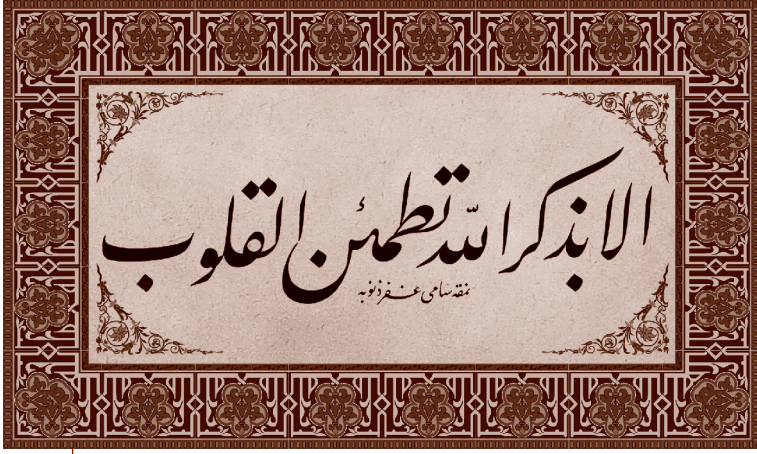 الا بذكر الله تطمئن القلوب
نمقه سامی غفر ذنوبه